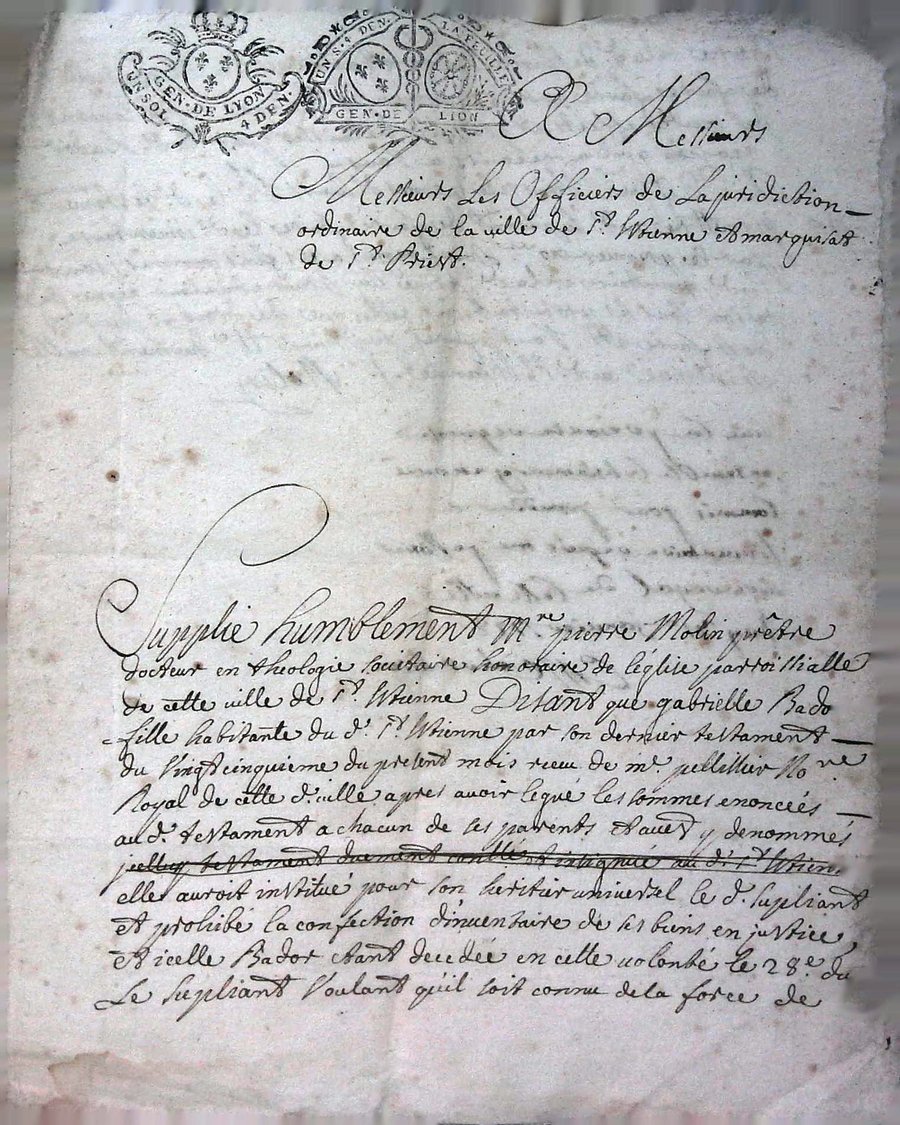 UN SOL
GEN · DE LYON
4 DEN ·
UN S. 8 DEN. LA FEUILLE
GEN · DE LION
A Messieurs
Messieurs Les Officiers de La juridiction
ordinaire de la ville de St. Etienne et marquisat
de St. Priest.
Supplie humblement Mre. pierre Molin prêtre
docteur en theologie societaire honoraire de léglise parroissialle
de cette ville de St. Etienne Disant que gabrielle Bado
fille habitante du d. St. Etienne par son dernier testament
du Vingtcinquieme du present mois receu de me. pellissier No re
Royal de cette d. ville, apres avoir legué les sommes enoncées
au d. testament a chacun de ses parents et y denommés
testament duement au d. St. Etienne
elle auroit institué pour son heritier universel le d. supliant
et prohibé la confection d'inventaire de ses biens en justice,
et icelle Bador etant decedée en cette volonté le 28e. du
Le supliant Voulant qu'il soit connu de la force de